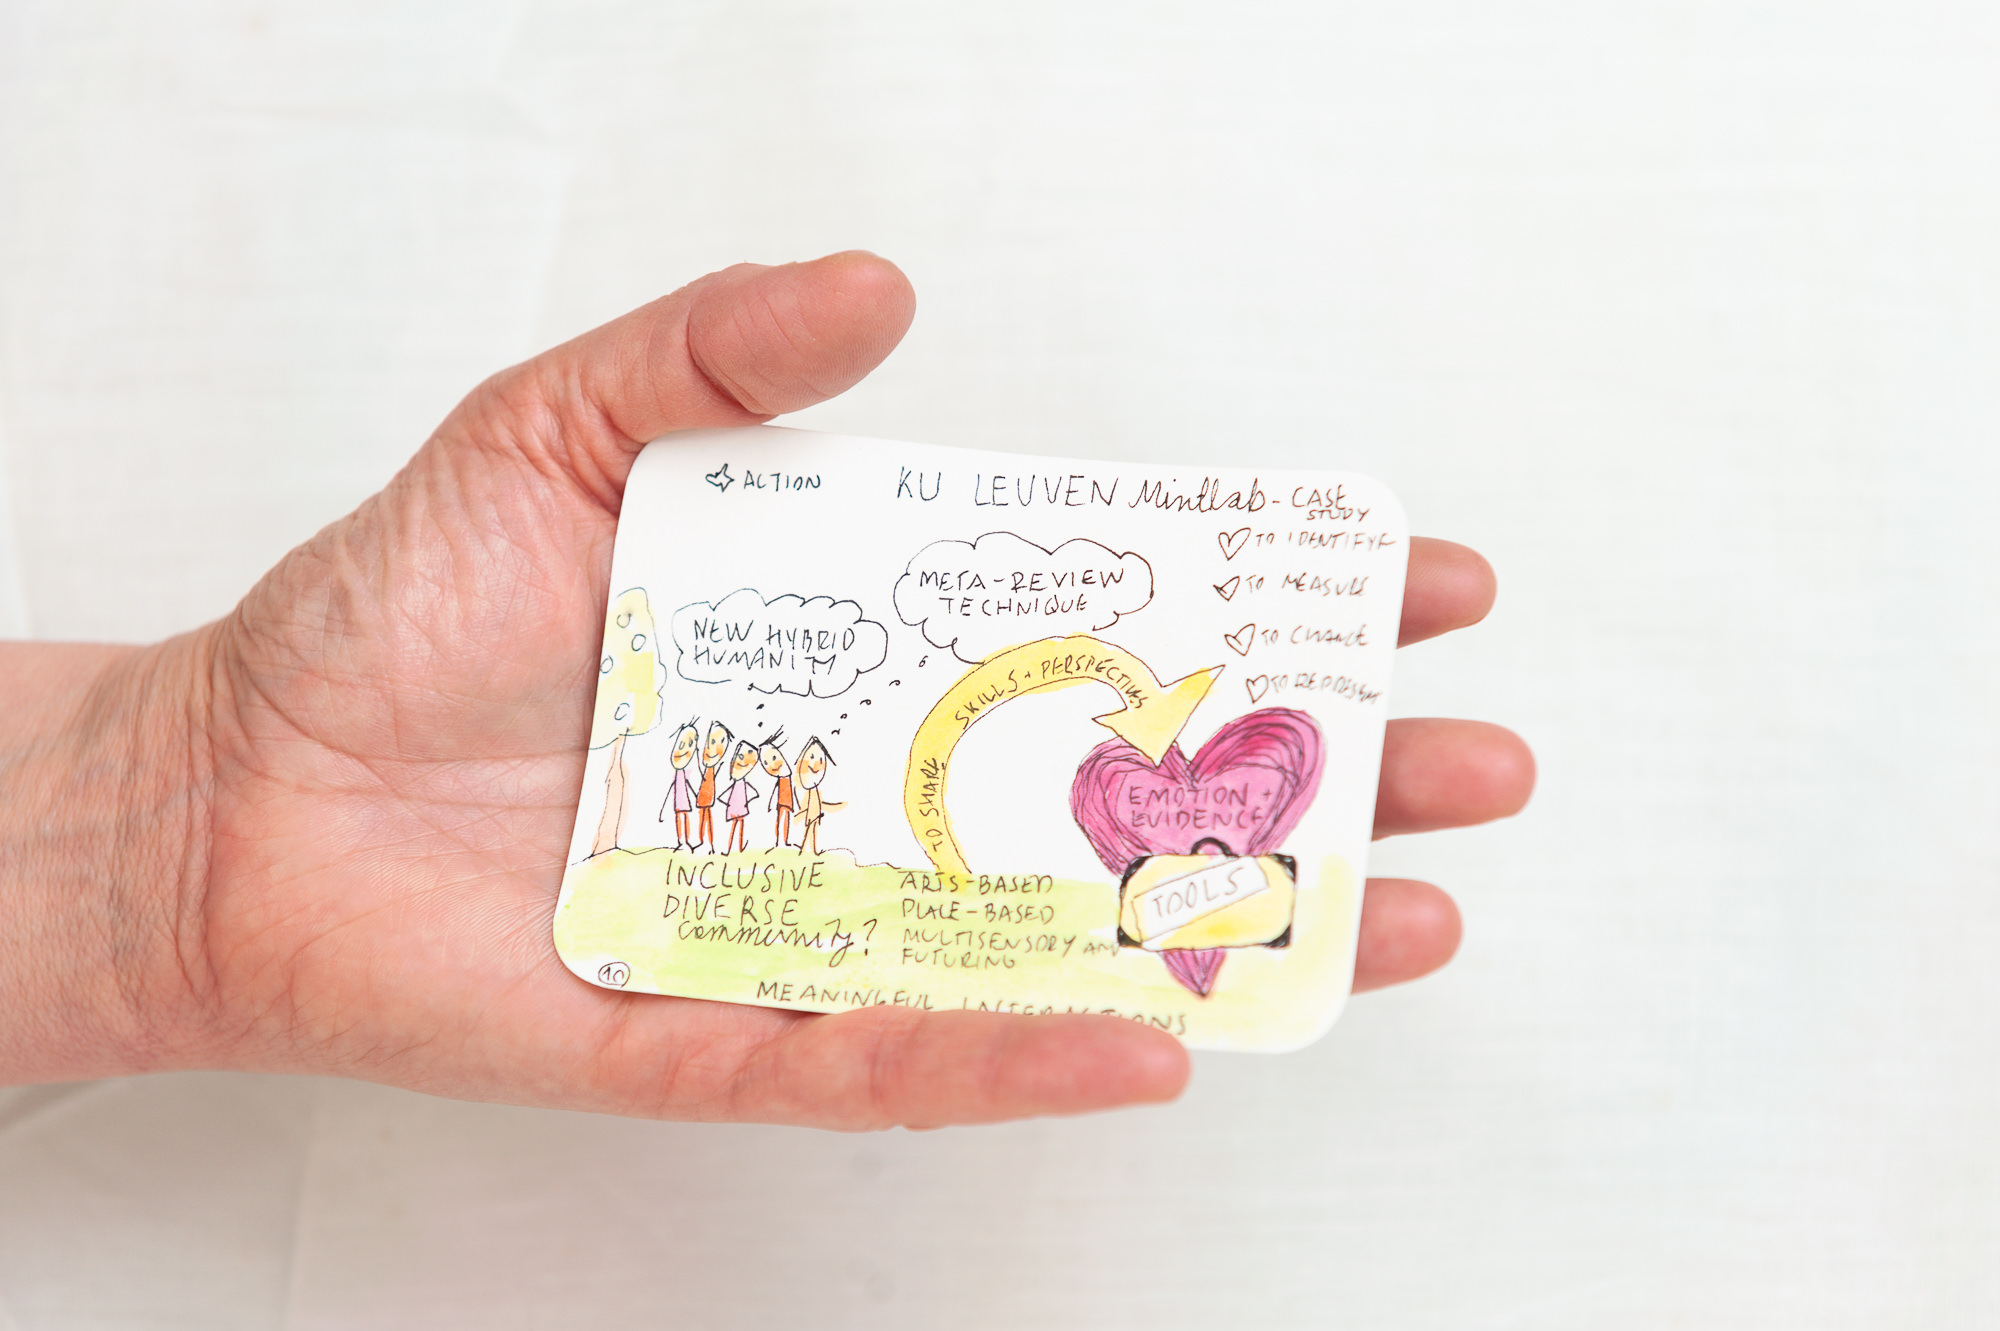 ACTION
KU LEUVEN Mintlab - CASE
STUDY
TO IDENTIFY
TO MEASURE
TO CHANGE
TO
META-REVIEW
TECHNIQUE
NEW HYBRID
HUMANITY
TO SHARE SKILLS + PERSPECTIVES
EMOTION +
EVIDENCE
TOOLS
INCLUSIVE
DIVERSE
community?
ARTS-BASED
PLACE-BASED
MULTISENSORY AND
FUTURING
10
MEANINGFUL INTERACTIONS